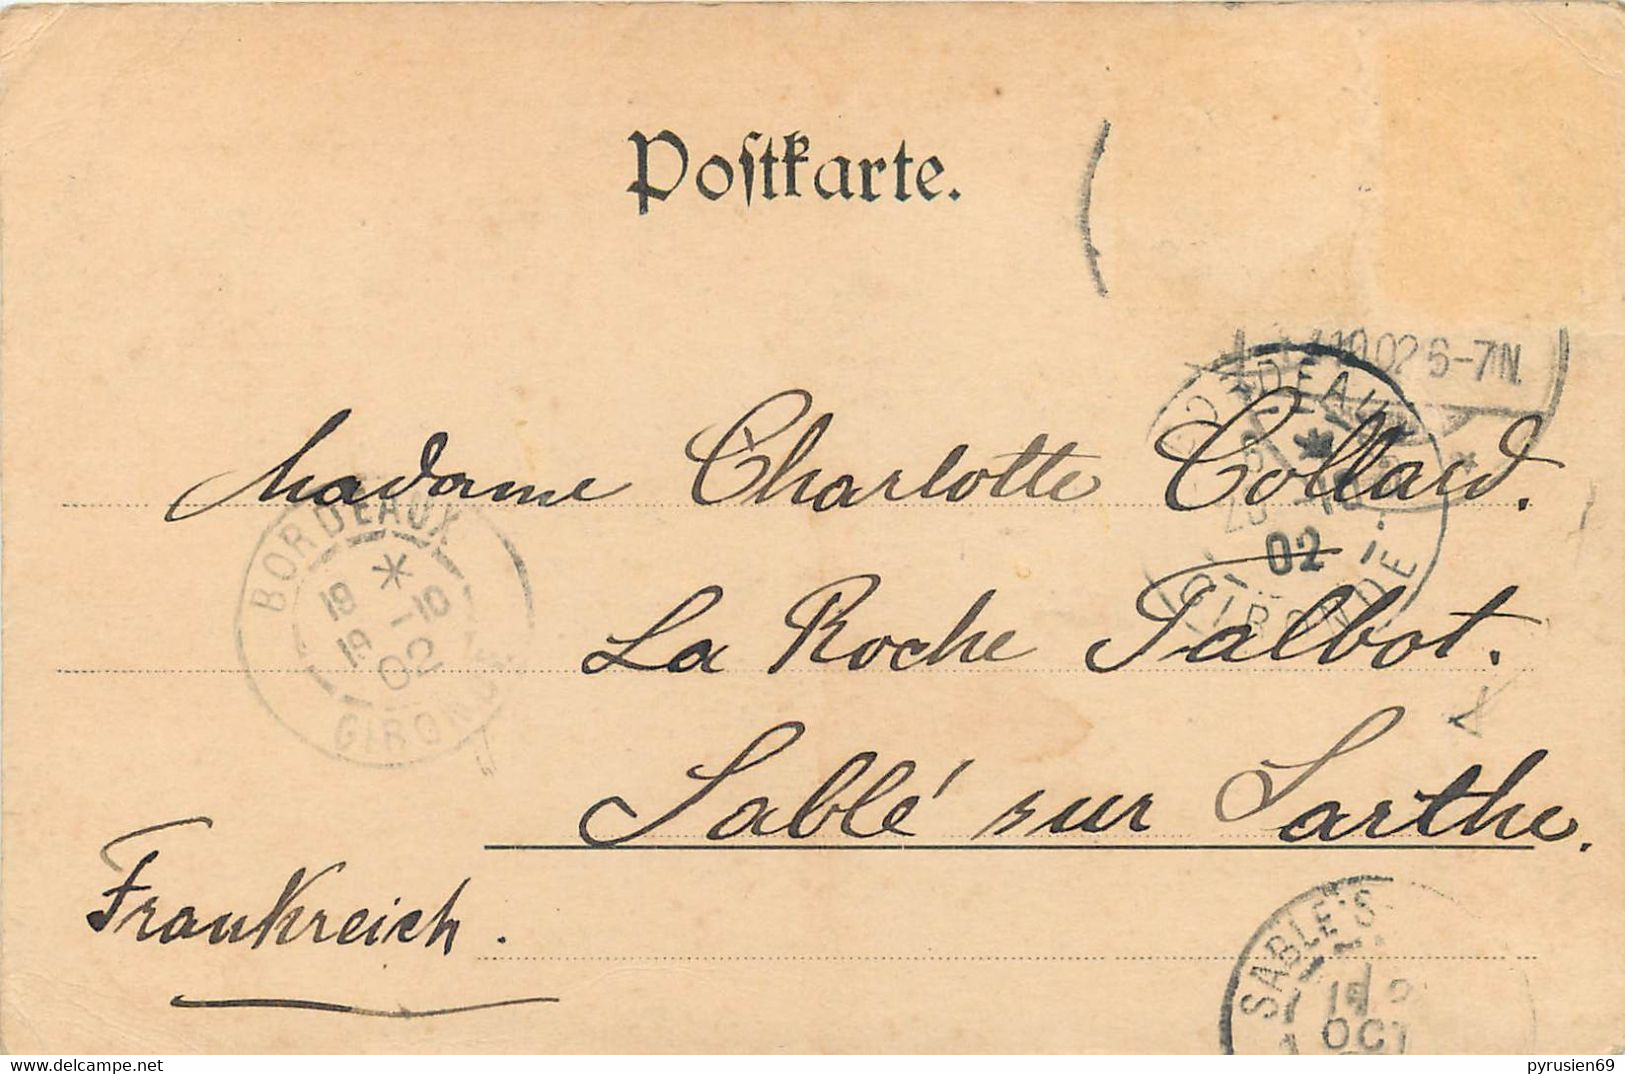 Postkarte.
10.02 6-7N.
BORDEAUX
GIRONDE
02
Madame Charlotte Collard.
BORDEAUX
19 -10
19 02
GIRONDE
La Roche Talbot.
Sablé sur Sarthe.
Frankreich.
SABLÉ S
OCT
www.delcampe.net
pyrusien69